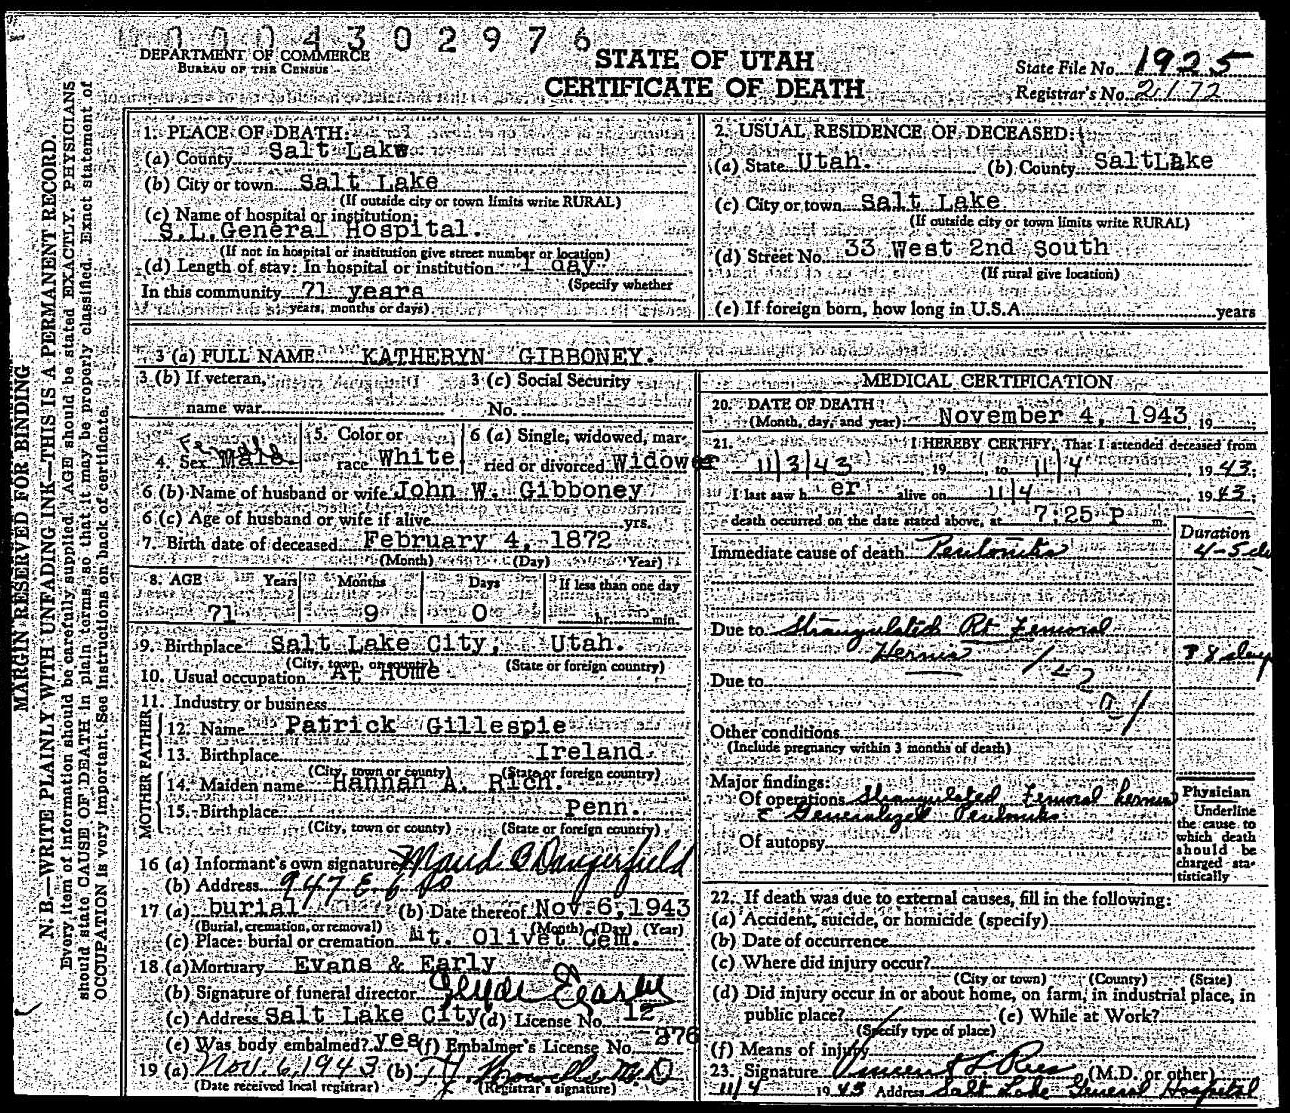 0004302976
DEPARTMENT OF COMMERCE
BUREAU OF THE CENSUS
STATE OF UTAH
CERTIFICATE OF DEATH
State File No. 1925
Registrar's No. 2172
MARGIN RESERVED FOR BINDING
N. B.—WRITE PLAINLY WITH UNFADING INK—THIS IS A PERMANENT RECORD.
Every item of information should be carefully supplied. AGE should be stated EXACTLY. PHYSICIANS
should state CAUSE OF DEATH in plain terms, so that it may be properly classified. Exact statement of
OCCUPATION is very important. See instructions on back of certificate.
1. PLACE OF DEATH:
(a) County Salt Lake
(b) City or town Salt Lake
(If outside city or town limits write RURAL)
(c) Name of hospital or institution:
S.L.General Hospital.
(If not in hospital or institution give street number or location)
(d) Length of stay: In hospital or institution 1 day
(Specify whether
In this community 71 years
years, months or days)
2. USUAL RESIDENCE OF DECEASED:
(a) State Utah. (b) County SaltLake
(c) City or town Salt Lake
(If outside city or town limits write RURAL)
(d) Street No. 33 West 2nd South
(If rural give location)
(e) If foreign born, how long in U.S.A. years
3 (a) FULL NAME KATHERYN GIBBONEY.
3 (b) If veteran, 3 (c) Social Security
name war No.
4. Sex Male Female 5. Color or race White 6 (a) Single, widowed, married or divorced Widower
6 (b) Name of husband or wife John W. Gibboney
6 (c) Age of husband or wife if alive yrs.
7. Birth date of deceased February 4, 1872
(Month) (Day) Year)
8. AGE Years Months Days If less than one day
71 9 0 hr. min.
9. Birthplace Salt Lake City, Utah.
(City, town, or county) (State or foreign country)
10. Usual occupation At Home
11. Industry or business
FATHER
12. Name Patrick Gillespie
13. Birthplace Ireland.
(City, town or county) (State or foreign country)
MOTHER
14. Maiden name Hannah A. Rich.
15. Birthplace Penn.
(City, town or county) (State or foreign country)
16 (a) Informant's own signature Maud B Dangerfield
(b) Address 947 E. 6 So
17 (a) burial (b) Date thereof Nov.6,1943
(Burial, cremation, or removal) (Month) (Day) (Year)
(c) Place: burial or cremation Mt. Olivet Cem.
18 (a) Mortuary Evans & Early
(b) Signature of funeral director Clyde Early
(c) Address Salt Lake City (d) License No. 12
(e) Was body embalmed? yes (f) Embalmer's License No. 276
19 (a) Nov. 6, 1943 (b) M.D
(Date received local registrar) (Registrar's signature)
MEDICAL CERTIFICATION
20. DATE OF DEATH
(Month, day, and year) November 4, 1943 19
21. I HEREBY CERTIFY, That I attended deceased from
11/3/43 19 , to 11/4 , 1943;
I last saw her alive on 11/4 , 1943;
death occurred on the date stated above, at 7:25 P m.
Duration
Immediate cause of death Peritonitis 4-5 da
Due to Strangulated Rt Femoral
Hernia 8 days
Due to
Other conditions
(Include pregnancy within 3 months of death)
Major findings:
Of operations Strangulated Femoral hernia
c Generalized Peritonitis
Of autopsy
Physician
Underline
the cause to
which death
should be
charged sta-
tistically
22. If death was due to external causes, fill in the following:
(a) Accident, suicide, or homicide (specify)
(b) Date of occurrence
(c) Where did injury occur?
(City or town) (County) (State)
(d) Did injury occur in or about home, on farm, in industrial place, in
public place? (e) While at Work?
(Specify type of place)
(f) Means of injury
23. Signature Vincent L Rees (M.D. or other)
11/4 1943 Address Salt Lake General Hospital